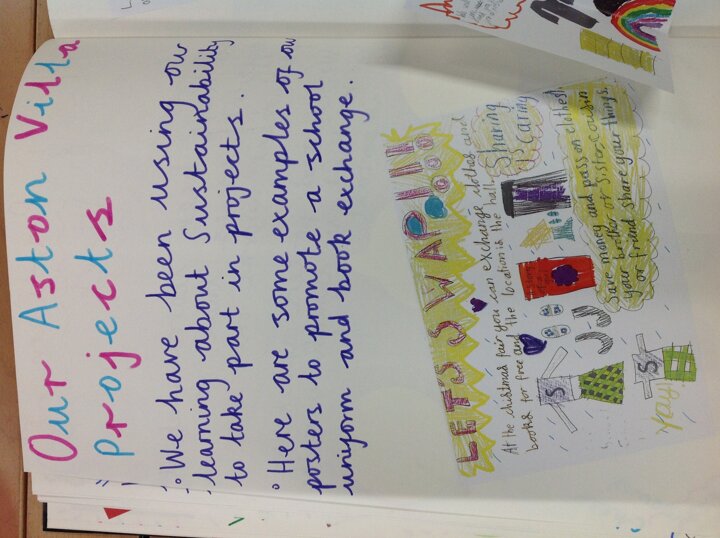 Our Aston Villa
Projects
• We have been using our
learning about Sustainability
to take part in projects.
• Here are some examples of our
posters to promote a school
uniform and book exchange.
LET'S SWAP!!!
At the christmas fair you can exchange clothes and
books for free and the location is the hall.
Sharing
is caring
Save money and pass on clothes!
Your brother or sister cousin
or friend share your things.
S
S
Yay!